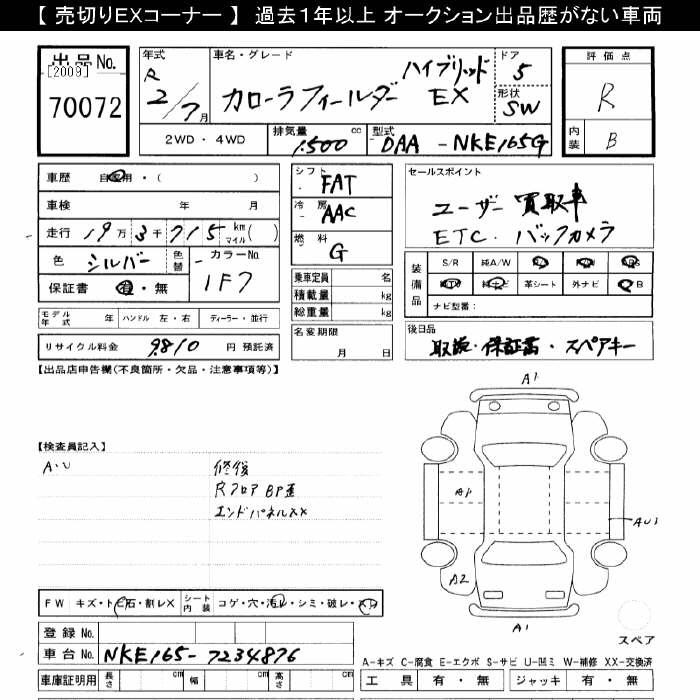 【 売切りEXコーナー 】 過去1年以上 オークション出品歴がない車両
出品No.
[2009]
70072
年式 車名・グレード ドア 評価点
R 2/7月 カローラフィールダー ハイブリッド EX 5 R
形状 SW
2WD・4WD 排気量 1500 cc 型式 DAA - NKE165G 内装 B
車歴 自家用・( )
車検 年 月
走行 19万3千715 km マイル ( )
色 シルバー 色替 - カラーNo. 1F7
保証書 有・無
シフト FAT
冷房 AAC
燃料 G
乗車定員 名
積載量 kg
総重量 kg
名変期限
月 日
セールスポイント
ユーザー買取車
ETC. バックカメラ
装備品 S/R 純A/W
純ナビ 革シート 外ナビ B
ナビ型番:
モデル年式 年 ハンドル 左・右 ディーラー・並行
リサイクル料金 9810 円 預託済
後日品
取説・保証書・スペアキー
【出品店申告欄(不良箇所・欠品・注意事項等)】
【検査員記入】
A・U 修後
Rフロア BP歪
エンドパネルXX
A1
A1
AU1
A2
A1
スペア
FW キズ・ト石・割レX シート内装 コゲ・穴・汚レ・シミ・破レ・スレ
登録No.
車台No. NKE165-7234876
車庫証明用 長さ cm 幅 cm 高さ cm
A-キズ C-腐食 E-エクボ S-サビ U-凹ミ W-補修 XX-交換済
工具 有・無 ジャッキ 有・無